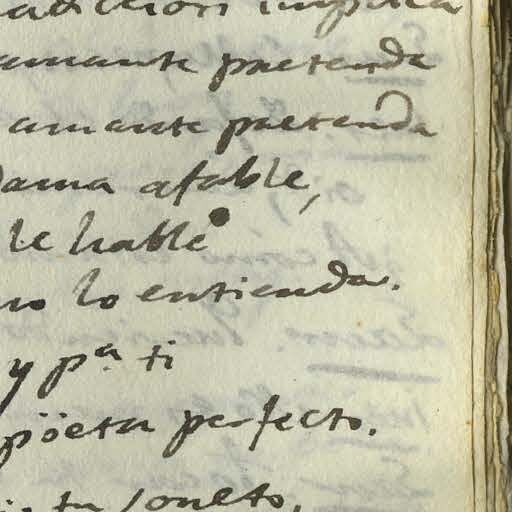 amante pretenda
amante pretenda
dama afable,
le hable
no lo entienda.
y pª ti
pöeta perfecto.
tu soneto.